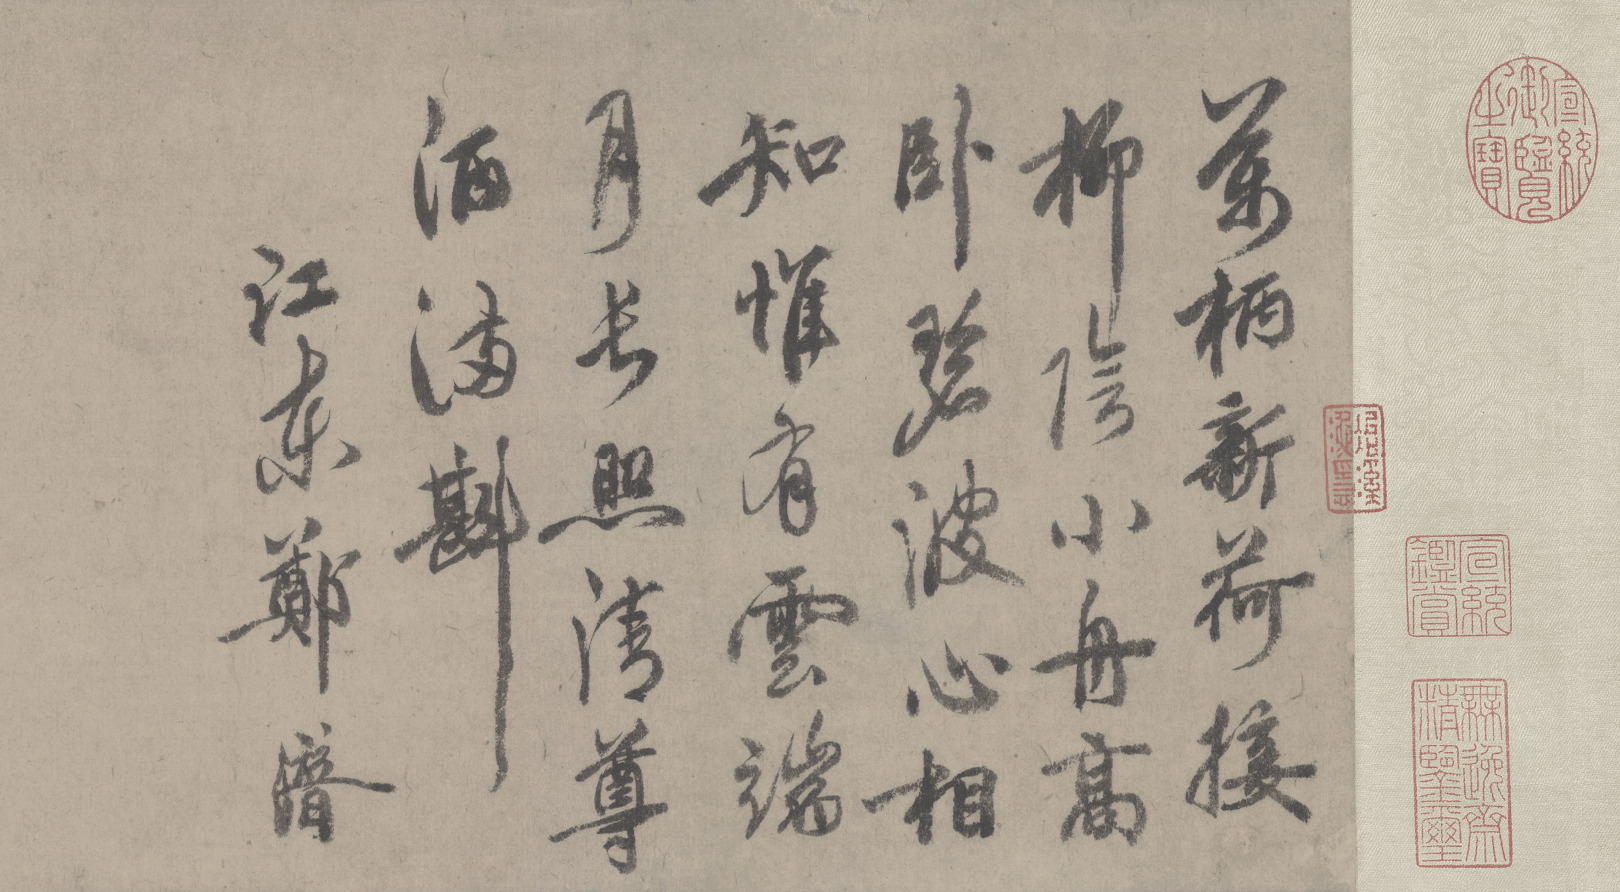 宣統
御覽
之寶
宣統
鑑賞
無逸齋
精鑒璽
萬柄新荷接
柳陰小舟高
卧碧波心相
知惟有雲端
月長照清尊
酒滿斟
江東鄭濟